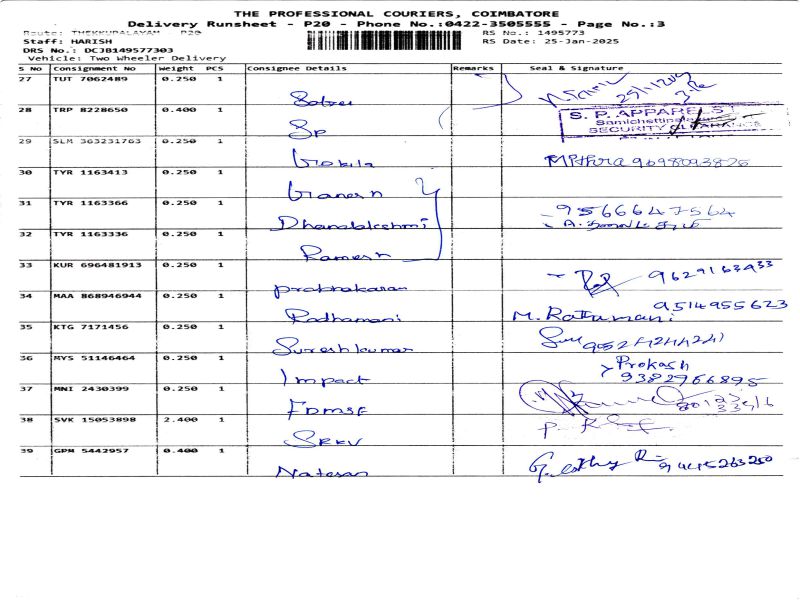 THE PROFESSIONAL COURIERS, COIMBATORE
Delivery Runsheet - P20 - Phone No.:0422-3505555 - Page No.:3
Route: THEKKUPALAYAM - P20 RS No.: 1495773
Staff: HARISH RS Date: 25-Jan-2025
DRS No.: DCJB149577303
Vehicle: Two Wheeler Delivery
S No Consignment No Weight PCS Consignee Details Remarks Seal & Signature
27 TUT 7062489 0.250 1
28 TRP 8228650 0.400 1 SP S. P. APPARELS
SECURITY
29 SLM 363231763 0.250 1 Gokila Mithra 9698093826
30 TYR 1163413 0.250 1 Ganesh
31 TYR 1163366 0.250 1 Dhanalakshmi 9566647564
32 TYR 1163336 0.250 1 Ramesh
33 KUR 696481913 0.250 1 Prabhakaran 9629163933
34 MAA 868946944 0.250 1 Radhamani M. Rathamani 9514955623
35 KTG 7171456 0.250 1 Sureshkumar
36 MYS 51146464 0.250 1 Impact Prokash 9382966895
37 MNI 2430399 0.250 1
38 SVK 15053898 2.400 1 SRKV
39 GPM 5442957 0.400 1 Natesan